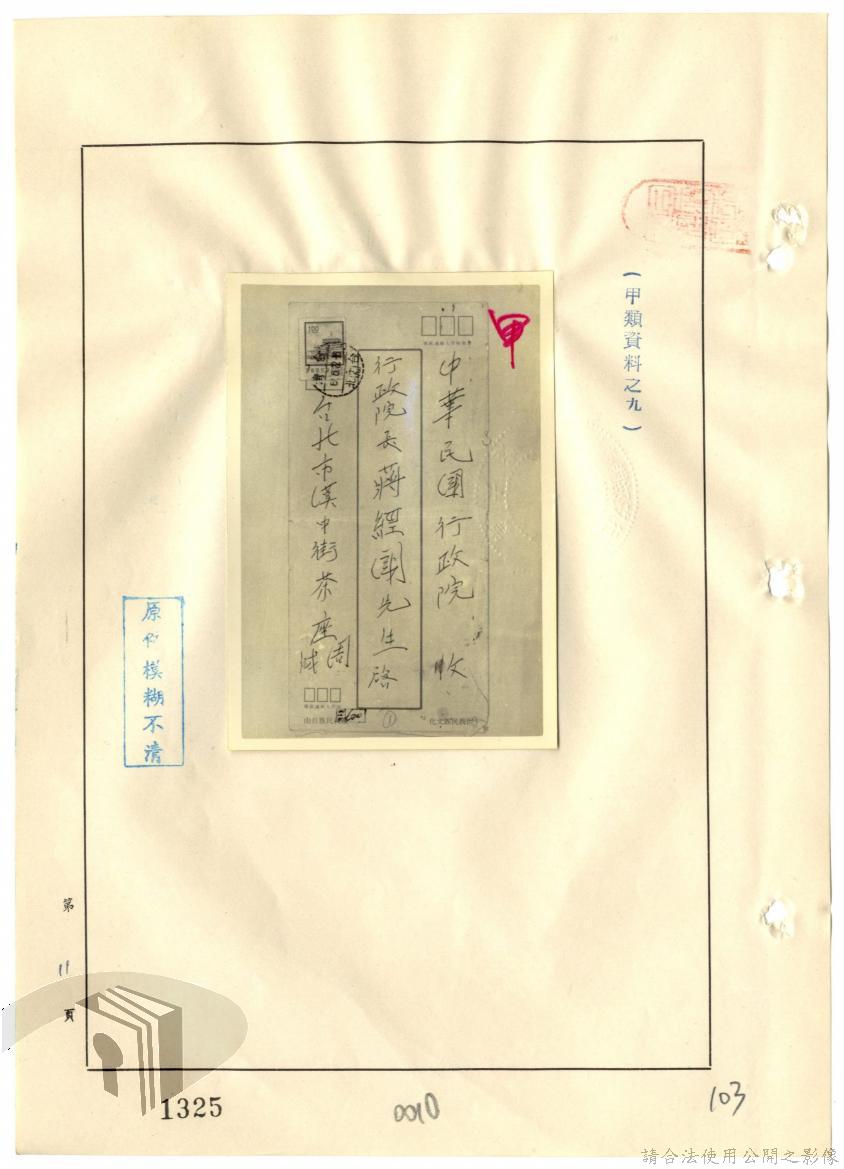 （甲類資料之九）
甲
中華民國行政院 收
行政院長蔣經國先生啓
台北市漢中街茶座
周
100
①
原件模糊不清
第
11
頁
1325
0010
103
請合法使用公開之影像